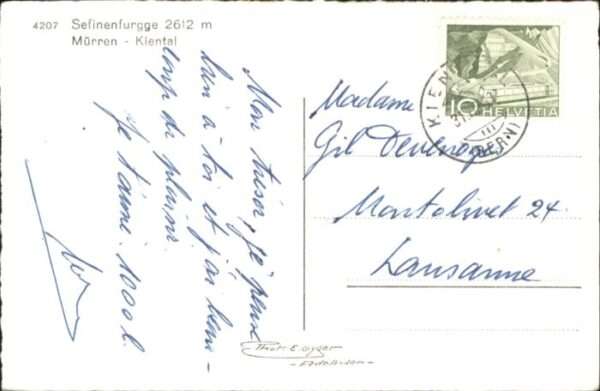 4207 Sefinenfurgge 2612 m
Mürren - Kiental
Mon trésor, je pense
bien à toi et j'ai beau-
coup de plaisir
Je t'aime. 1000 b.
Madame
Gil Devenoge
Montolivet 24.
Lausanne
10 HELVETIA
KIENTAL
(BERN)
Phot. E. Gyger
- Adelboden -